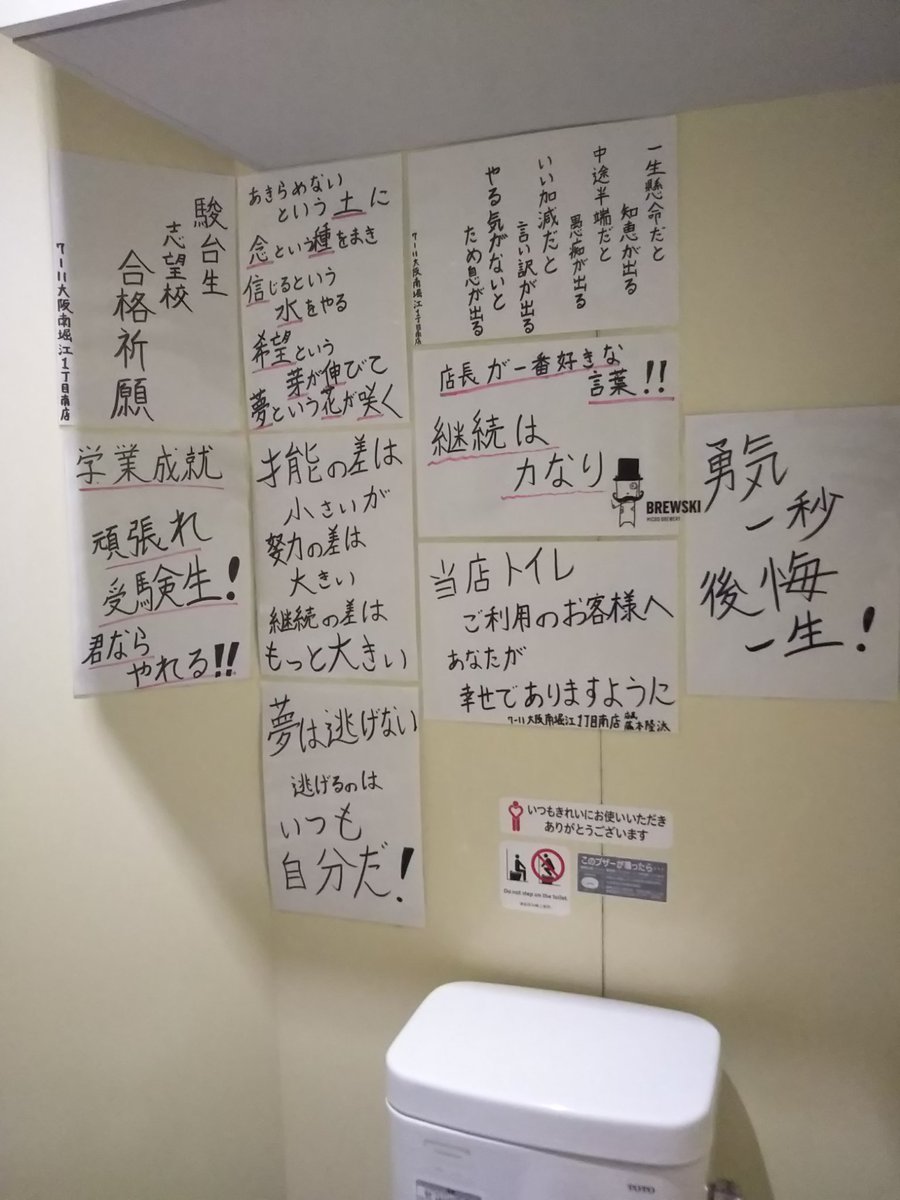 駿台生
志望校
合格祈願
7-11大阪南堀江1丁目南店
学業成就
頑張れ
受験生!
君なら
やれる!!
あきらめない
という土に
念という種をまき
信じるという
水をやる
希望という
芽が伸びて
夢という花が咲く
才能の差は
小さいが
努力の差は
大きい
継続の差は
もっと大きい
夢は逃げない
逃げるのは
いつも
自分だ!
一生懸命だと
知恵が出る
中途半端だと
愚痴が出る
いい加減だと
言い訳が出る
やる気がないと
ため息が出る
7-11大阪南堀江1丁目南店
店長が一番好きな
言葉!!
継続は
力なり
BREWSKI
MICRO BREWERY
当店トイレ
ご利用のお客様へ
あなたが
幸せでありますように
7-11大阪南堀江1丁目南店
勇気
一秒
後悔
一生!
いつもきれいにお使いいただき
ありがとうございます
Do not step on the toilet
このブザーが鳴ったら…
TOTO